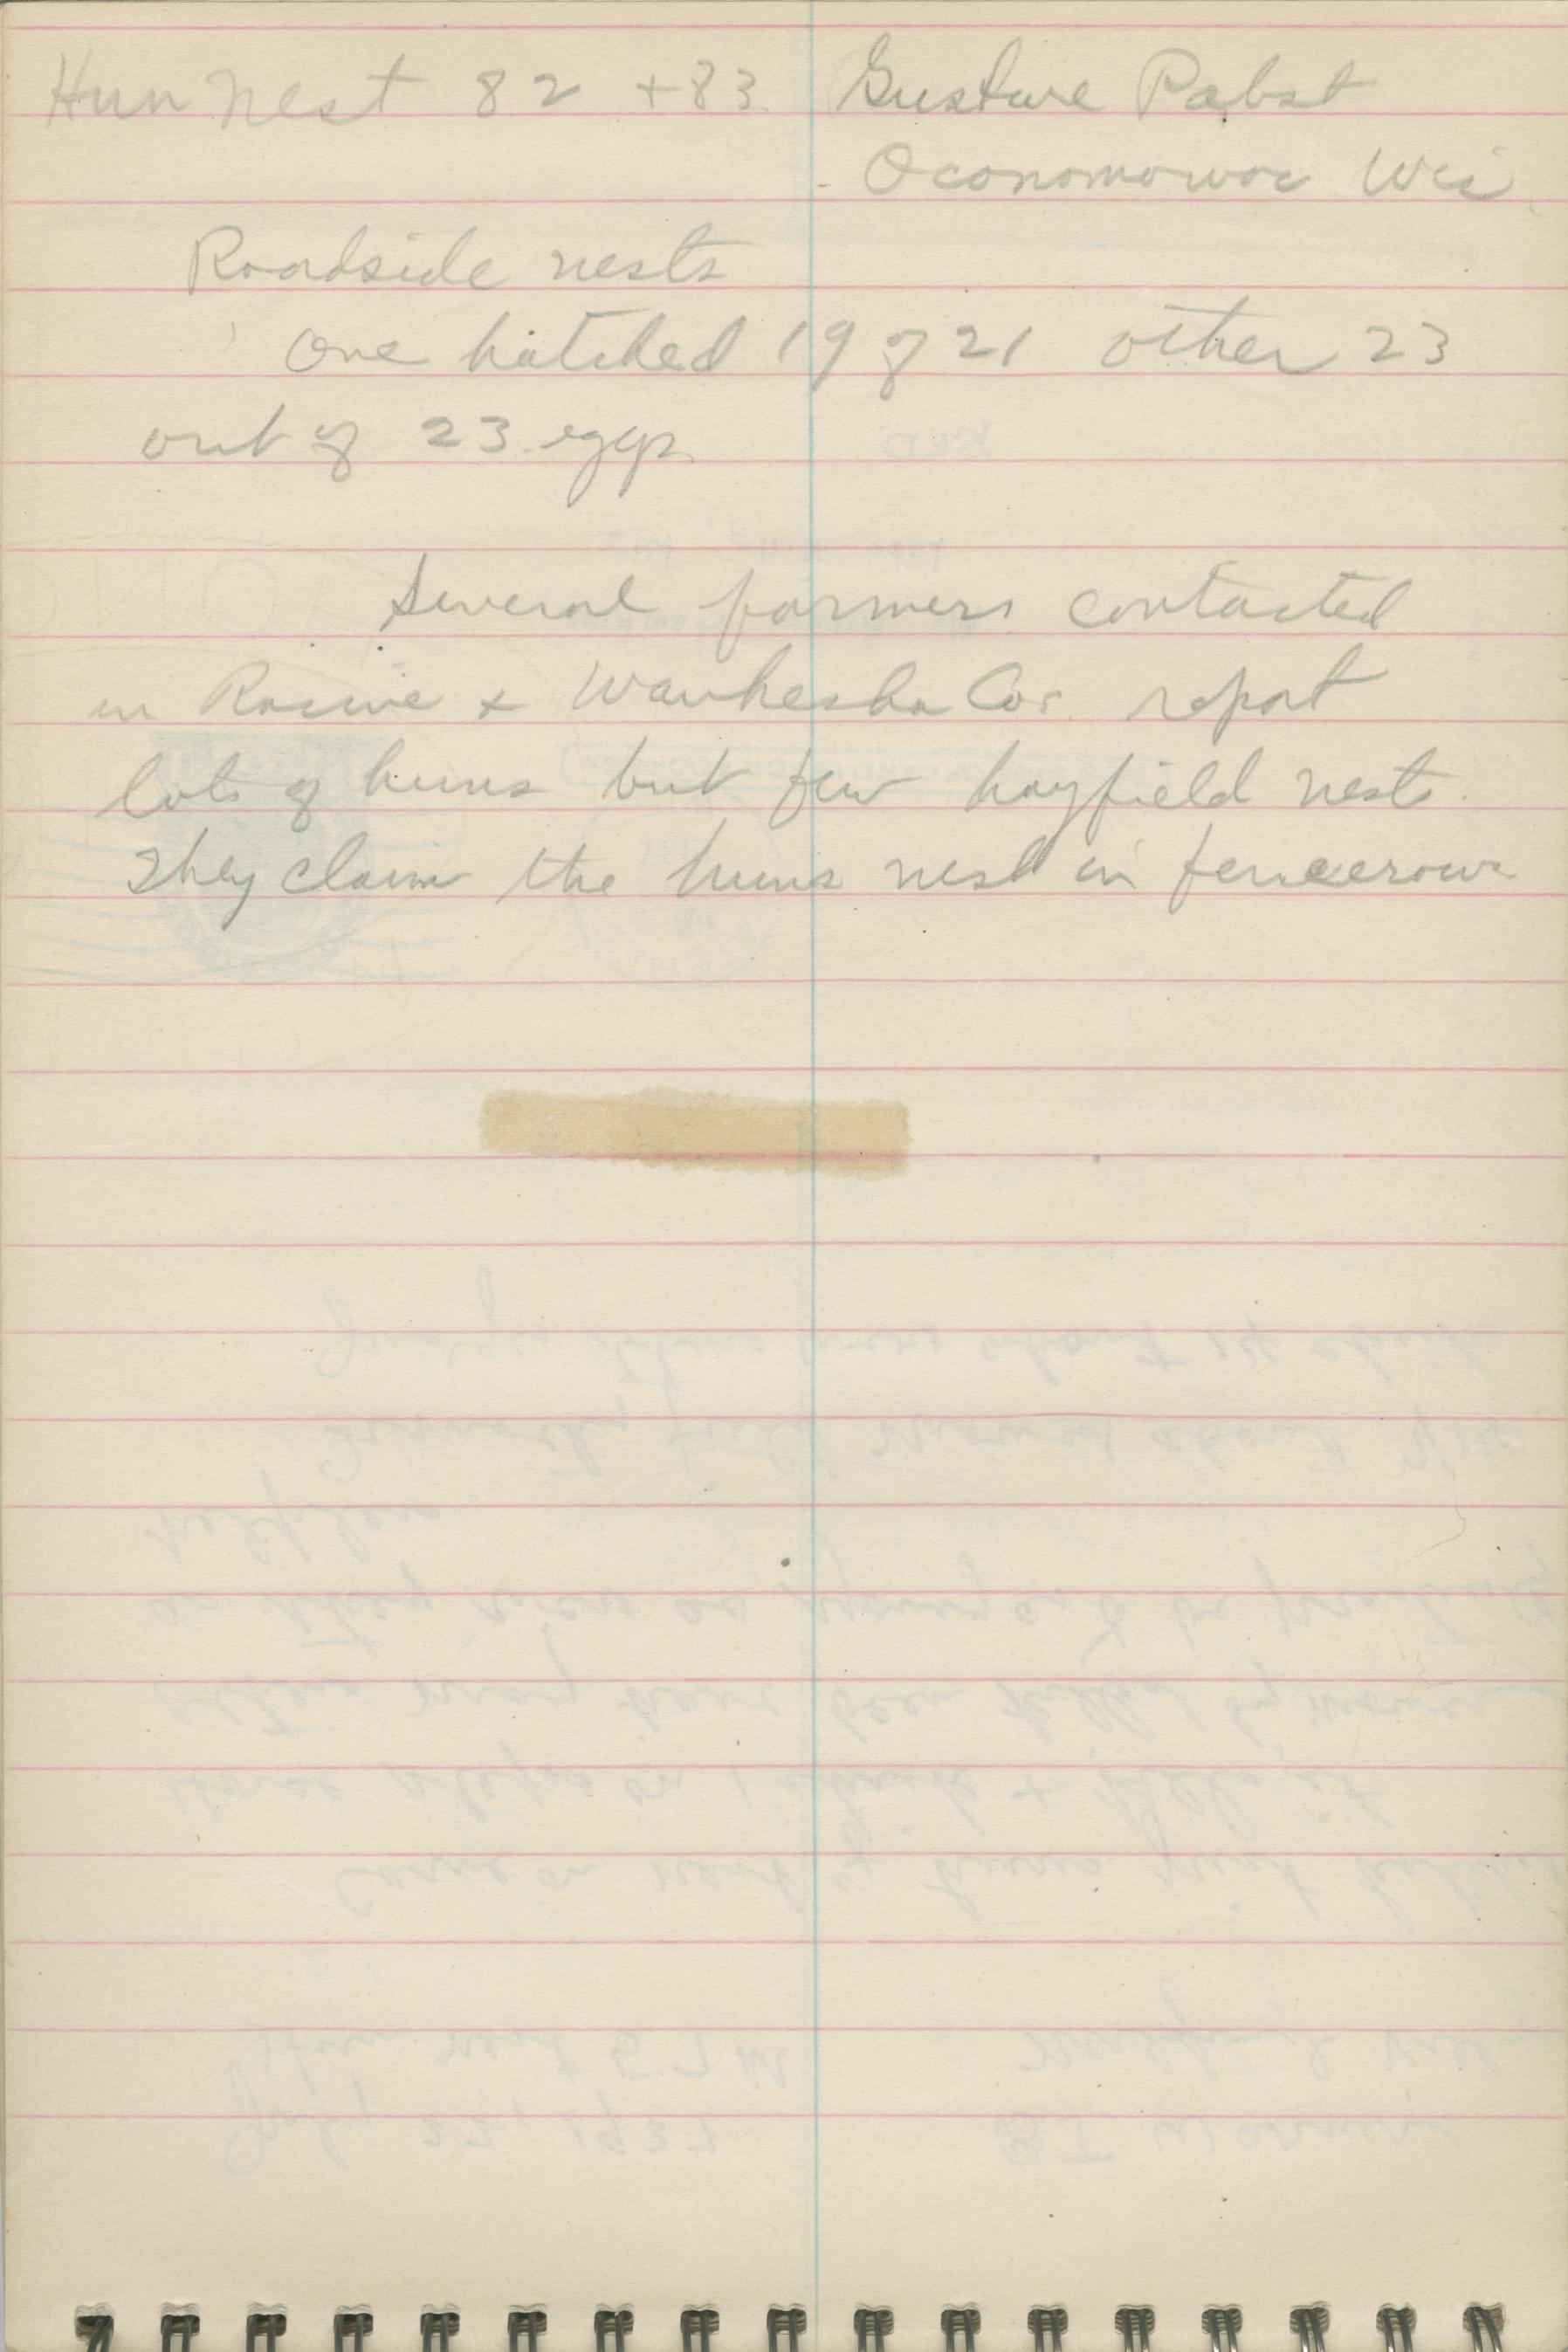 Hun Nest 82 + 83 Gustave Pabst
Oconomowoc Wis
Roadside nests
One hatched 19 of 21 other 23
out of 23 eggs
Several farmers contacted
in Racine & Waukesha Cos. report
lots of huns but few hayfield nests.
They claim the huns nest in fencerows